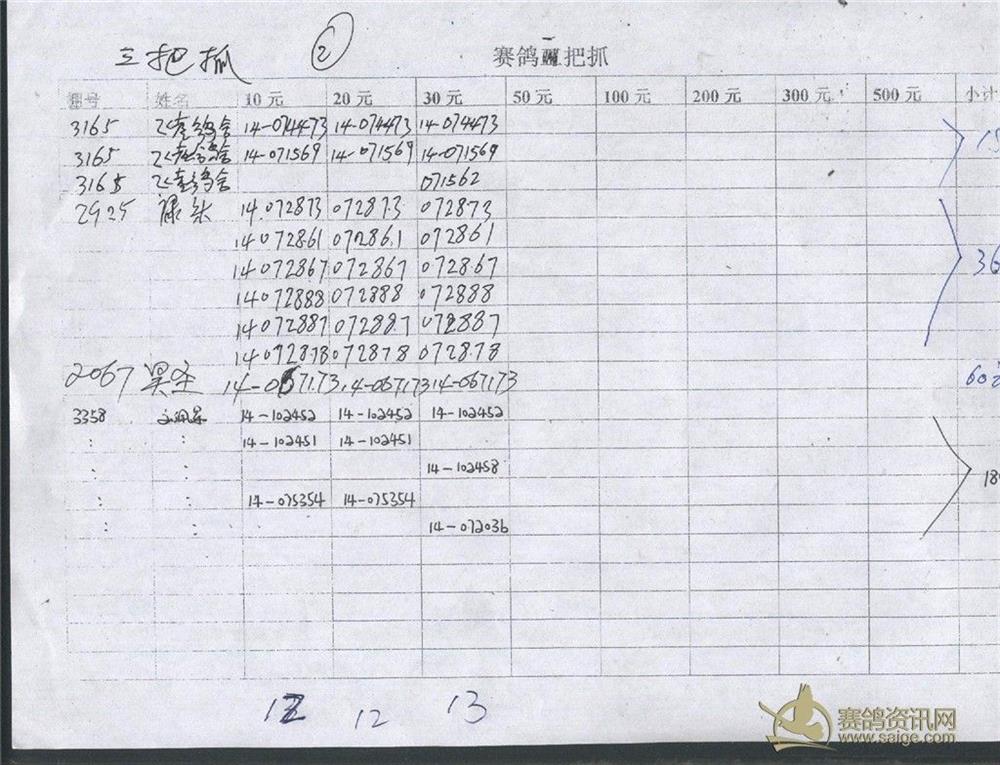 三把抓 ②
赛鸽 把抓
棚号 姓名 10元 20元 30元 50元 100元 200元 300元 500元 小计
3165 鸽舍 14-074473 14-074473 14-074473
3165 鸽舍 14-071569 14-071569 14-071569
3165 鸽舍 071562
2925 14.072873 072873 072873
14072861 072861 072861
14072867 072867 072867 36
14072888 072888 072888
14072887 072887 072887
14072878 072878 072878
2067 14-067173 14-067173 14-067173 60
3358 14-102452 14-102452 14-102452
: : 14-102451 14-102451
: : 14-102458
: : 14-075354 14-075354
: : 14-072036
12 12 13
赛鸽资讯网
www.saige.com